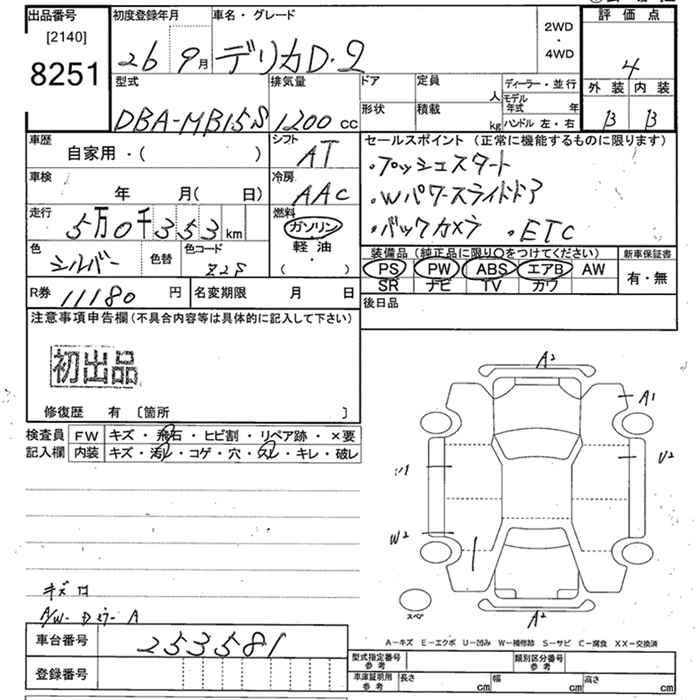 出品番号
[2140]
8251
初度登録年月
26 9月
車名・グレード
デリカD・2
2WD
・
4WD
評価点
4
外装 内装
B B
型式
DBA-MB15S
排気量
1200 cc
ドア
定員
人
形状
積載
kg
ディーラー・並行
モデル年式 年
ハンドル 左・右
車歴
自家用・( )
シフト
AT
車検
年 月( 日)
冷房
AAC
走行
5万0千353km
燃料
ガソリン
軽油
・
( )
色
シルバー
色替
色コード
Z2S
セールスポイント(正常に機能するものに限ります)
・プッシュスタート
・Wパワースライドドア
・バックカメラ ・ETC
装備品(純正品に限り○をつけてください)
PS PW ABS エアB AW
SR ナビ TV カワ
新車保証書
有・無
R券 11180円
名変期限 月 日
後日品
注意事項申告欄(不具合内容等は具体的に記入して下さい)
初出品
修復歴 有 〔箇所 〕
検査員記入欄
FW キズ・飛石・ヒビ割・リペア跡・×要
内装 キズ・汚れ・コゲ・穴・スレ・キレ・破レ
A2
A1
U2
W2
A2
スペア
キズ
A-キズ E-エクボ U-凹み W-補修跡 S-サビ C-腐食 XX-交換済
車台番号
253581
登録番号
型式指定番号参考
類別区分番号参考
車庫証明用参考
長さ cm
幅 cm
高さ cm